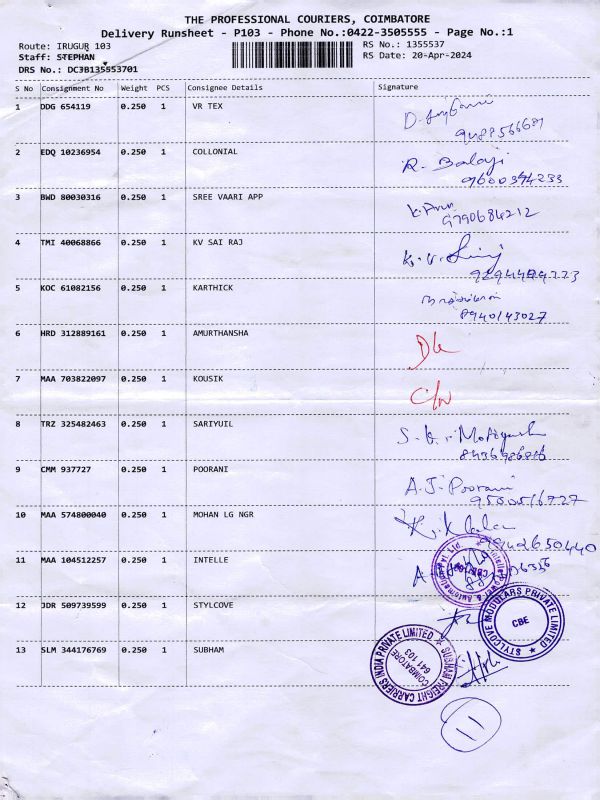 THE PROFESSIONAL COURIERS, COIMBATORE
Delivery Runsheet - P103 - Phone No.:0422-3505555 - Page No.:1
Route: IRUGUR 103
RS No.: 1355537
Staff: STEPHAN
RS Date: 20-Apr-2024
DRS No.: DC3B135553701
S No Consignment No Weight PCS Consignee Details Signature
1 DDG 654119 0.250 1 VR TEX
2 EDQ 10236954 0.250 1 COLLONIAL R. Balaji
9600394233
3 BWD 80030316 0.250 1 SREE VAARI APP
9790684212
4 TMI 40068866 0.250 1 KV SAI RAJ
5 KOC 61082156 0.250 1 KARTHICK
8940143027
6 HRD 312889161 0.250 1 AMURTHANSHA
7 MAA 703822097 0.250 1 KOUSIK
8 TRZ 325482463 0.250 1 SARIYUIL
9 CMM 937727 0.250 1 POORANI A.J. Poorani
9500516727
10 MAA 574800040 0.250 1 MOHAN LG NGR
9942650440
11 MAA 104512257 0.250 1 INTELLE
12 JDR 509739599 0.250 1 STYLCOVE
STYLLOVE MODULARS PRIVATE LIMITED
CBE
13 SLM 344176769 0.250 1 SUBHAM
SUBHAM FREIGHT CARRIERS INDIA PRIVATE LIMITED
COIMBATORE
641 103
11